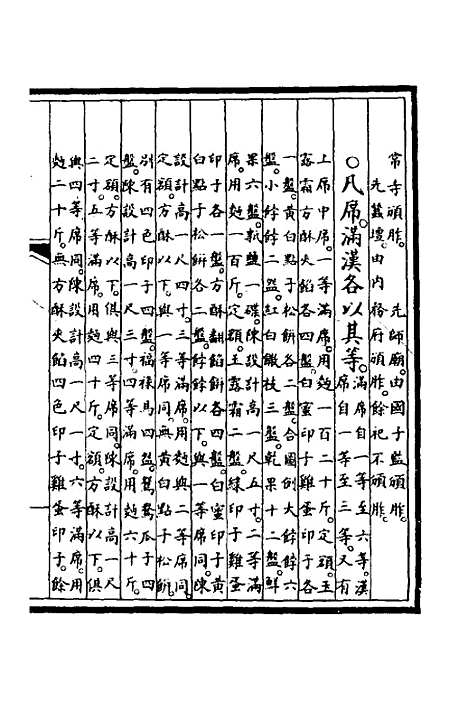 常寺頒胙。　先師廟。由國子監頒胙。
先蠶壇。由內務府頒胙。餘祀不頒胙。
○凡席滿漢各以其等。
滿席自一等至六等。漢
席自一等至三等。又有
上席中席。一等滿席。用麪一百二十斤。定額。玉
露霜方酥夾餡各四盤。白蜜印子雞蛋印子各
一盤。黃白點子松餅各二盤。合圖例大餑餑六
盤。小餑餑二盌。紅白饊枝三盤。乾果十二盤。鮮
果六盤。甎鹽一碟。陳設計高一尺五寸。二等滿
席。用麪一百斤。定額。玉露霜二盤。綠印子雞蛋
印子各一盤。方酥翻餡餅各四盤。白蜜印子黃
白點子松餅各二盤。餑餑以下。與一等席同。陳
設計高一尺四寸。三等滿席。用麪與二等席同。
定額。方酥以下。與一等席同。無黃白點子松餅。
別有四色印子四盤。福祿馬四盌。鴛鴦瓜子四
盤。陳設計高一尺三寸。四等滿席。用麪六十斤。
定額。方酥以下。俱與三等席同。陳設計高一尺
二寸。五等滿席。用麪四十斤。定額。方酥以下。俱
與四等席同。陳設計高一尺一寸。六等滿席。用
麪二十斤。無方酥夾餡四色印子雞蛋印子。餘